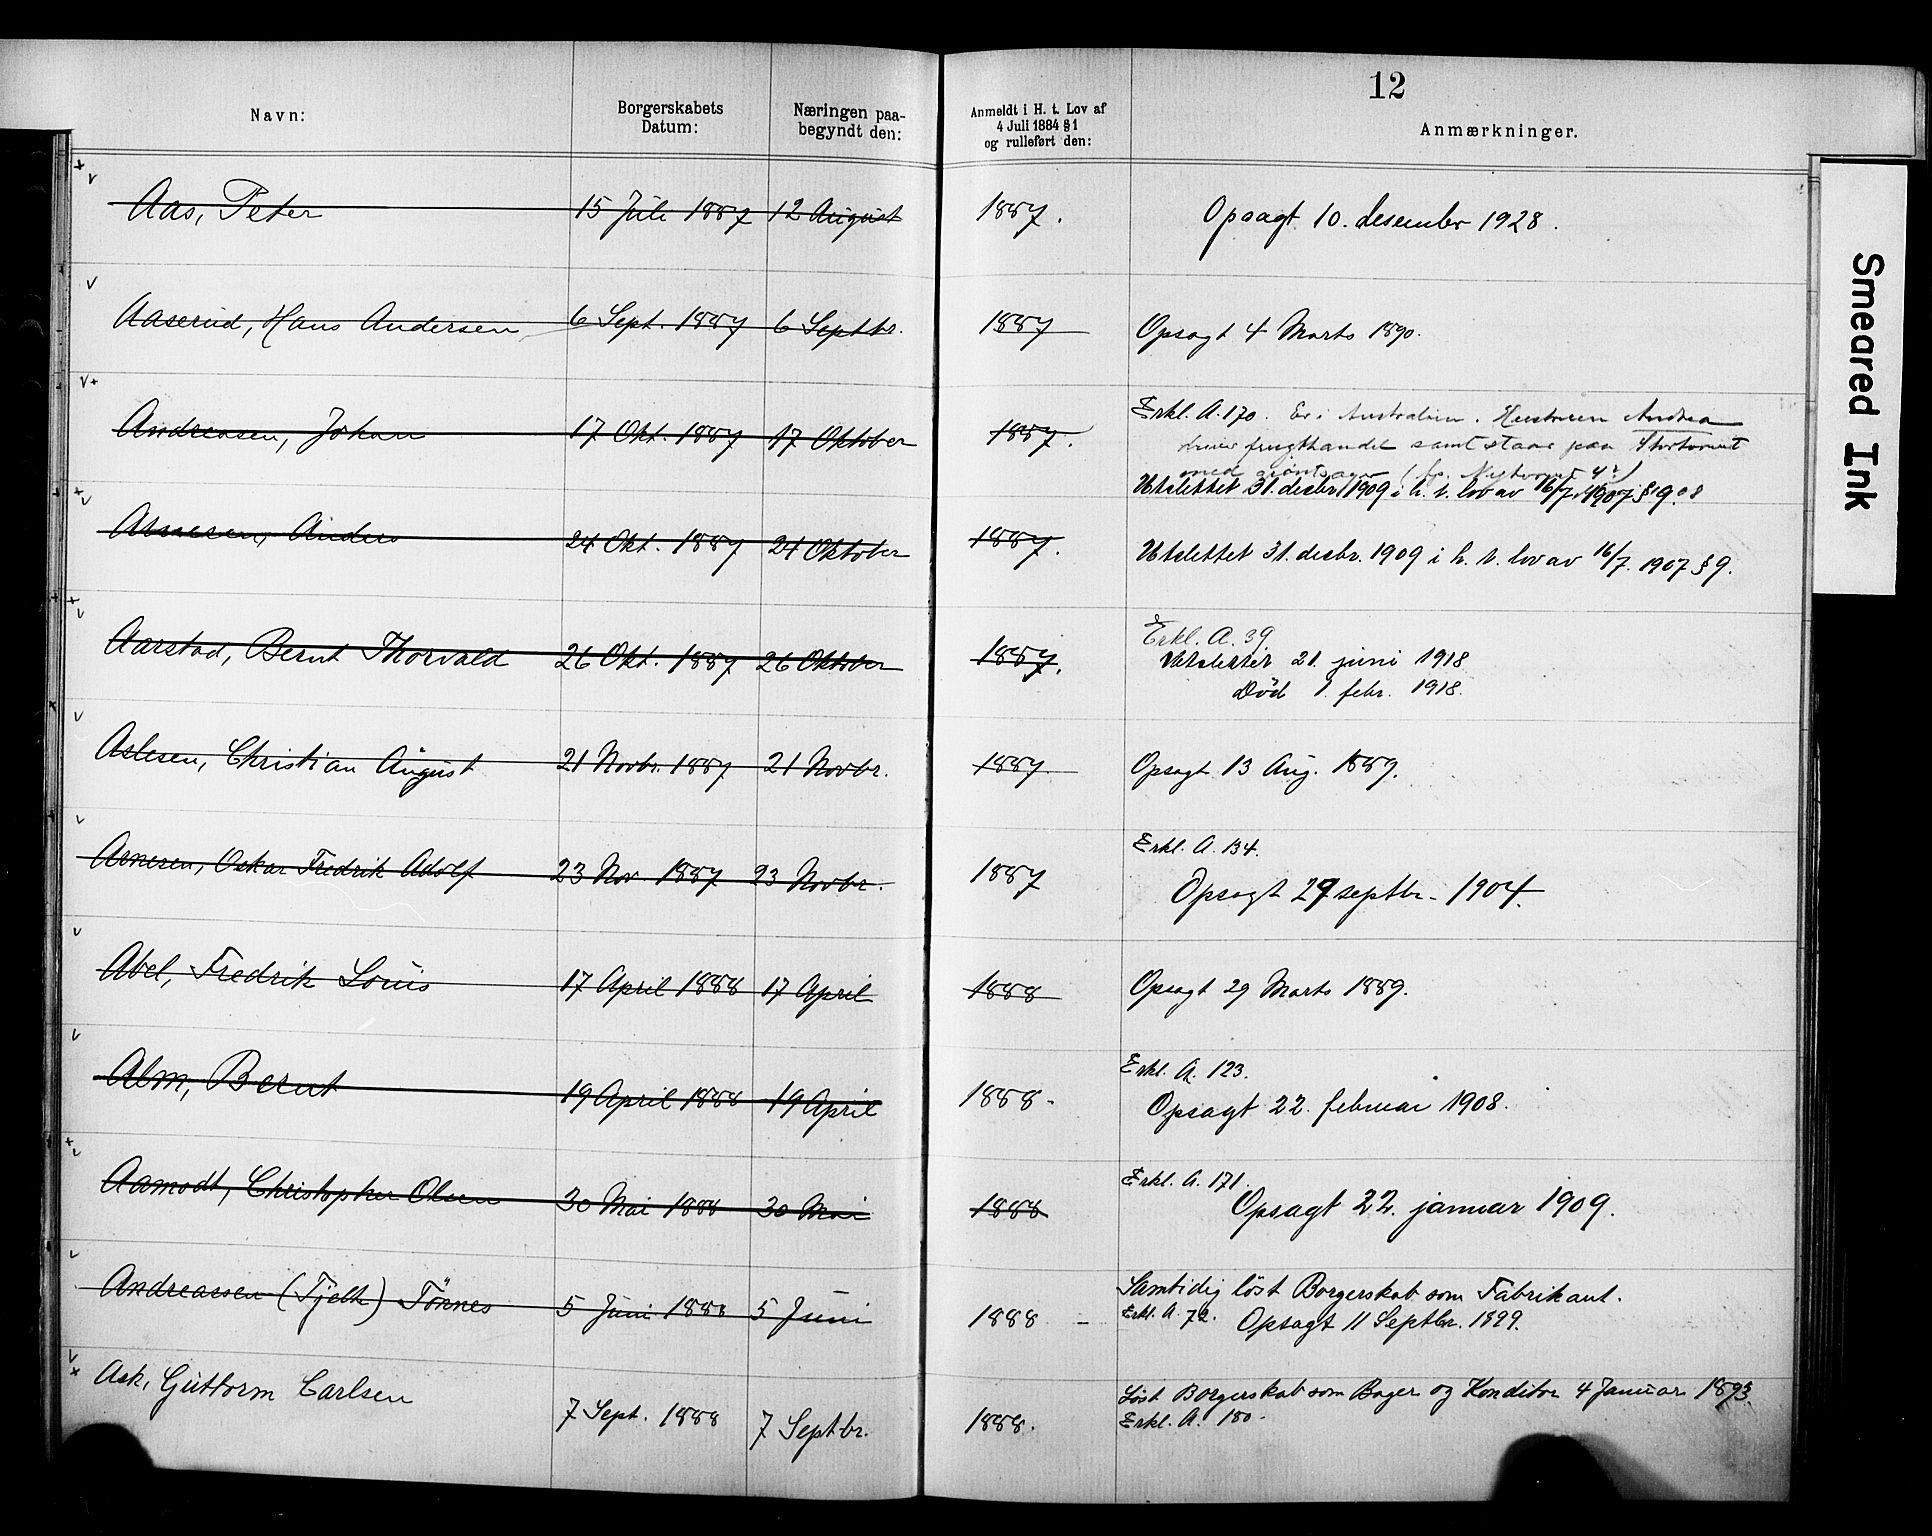 12
Navn:
Borgerskabets Datum:
Næringen paabegyndt den:
Anmeldt i H. t. Lov af 4 Juli 1884 § 1 og rulleført den:
Anmærkninger.
Smeared Ink
Aas, Peter 15 Juli 1887 12 August 1887. Opsagt 10. desember 1928.
Aaserud, Hans Andersen 6 Sept. 1887 6 Septbr. 1887 Opsagt 4 Marts 1890.
Andreasen, Johan 17 Okt. 1887 17 Oktober 1887. Erkl. A. 170. Er i Australien. Hustruen Andrea
driver frugthandel samt staar paa Stortorvet
med grøntsager
Utslettet 31. desbr. 1909 i h. t. lov av 16/7 1907 § 9.
Anders 24 Okt. 1887 24 Oktober 1887. Utslettet 31. desbr. 1909 i h. t. lov av 16/7. 1907 § 9.
Aarstad, Bernt Thorvald 26 Okt. 1887 26 Oktober 1887. Erkl. A. 39
Utslettet 21. juni 1918
Död 1. febr. 1918.
Aslesen, Christian August 21 Novbr. 1887 21 Novbr. 1887. Opsagt 13 Aug. 1889.
Arnesen, Oskar Fredrik Adolf 23 Nov. 1887 23 Novbr. 1887 Erkl. A. 134.
Opsagt 29 septbr. 1904.
Abel, Fredrik Louis 17 April 1888 17 April 1888 Opsagt 29 Marts 1889.
Alm, Bernt 19 April 1888 19 April 1888 - Erkl. A. 123.
Opsagt 22. februar 1908.
Aamodt, Christopher Olsen 30 Mai 1888 30 Mai 1888 Erkl. A. 171.
Opsagt 22. januar 1909.
Andreassen (Fjelk) Tönnes 5 Juni 1888 5 Juni 1888 - Samtidig löst Borgerskab som Fabrikant.
Erkl. A. 72. Opsagt 11 Septbr. 1899.
Ask, Guttorm Carlsen 7 Sept. 1888 7 Septbr. 1888. Löst Borgerskab som Bager og Konditor 4 Januar 1893.
Erkl. A. 180.